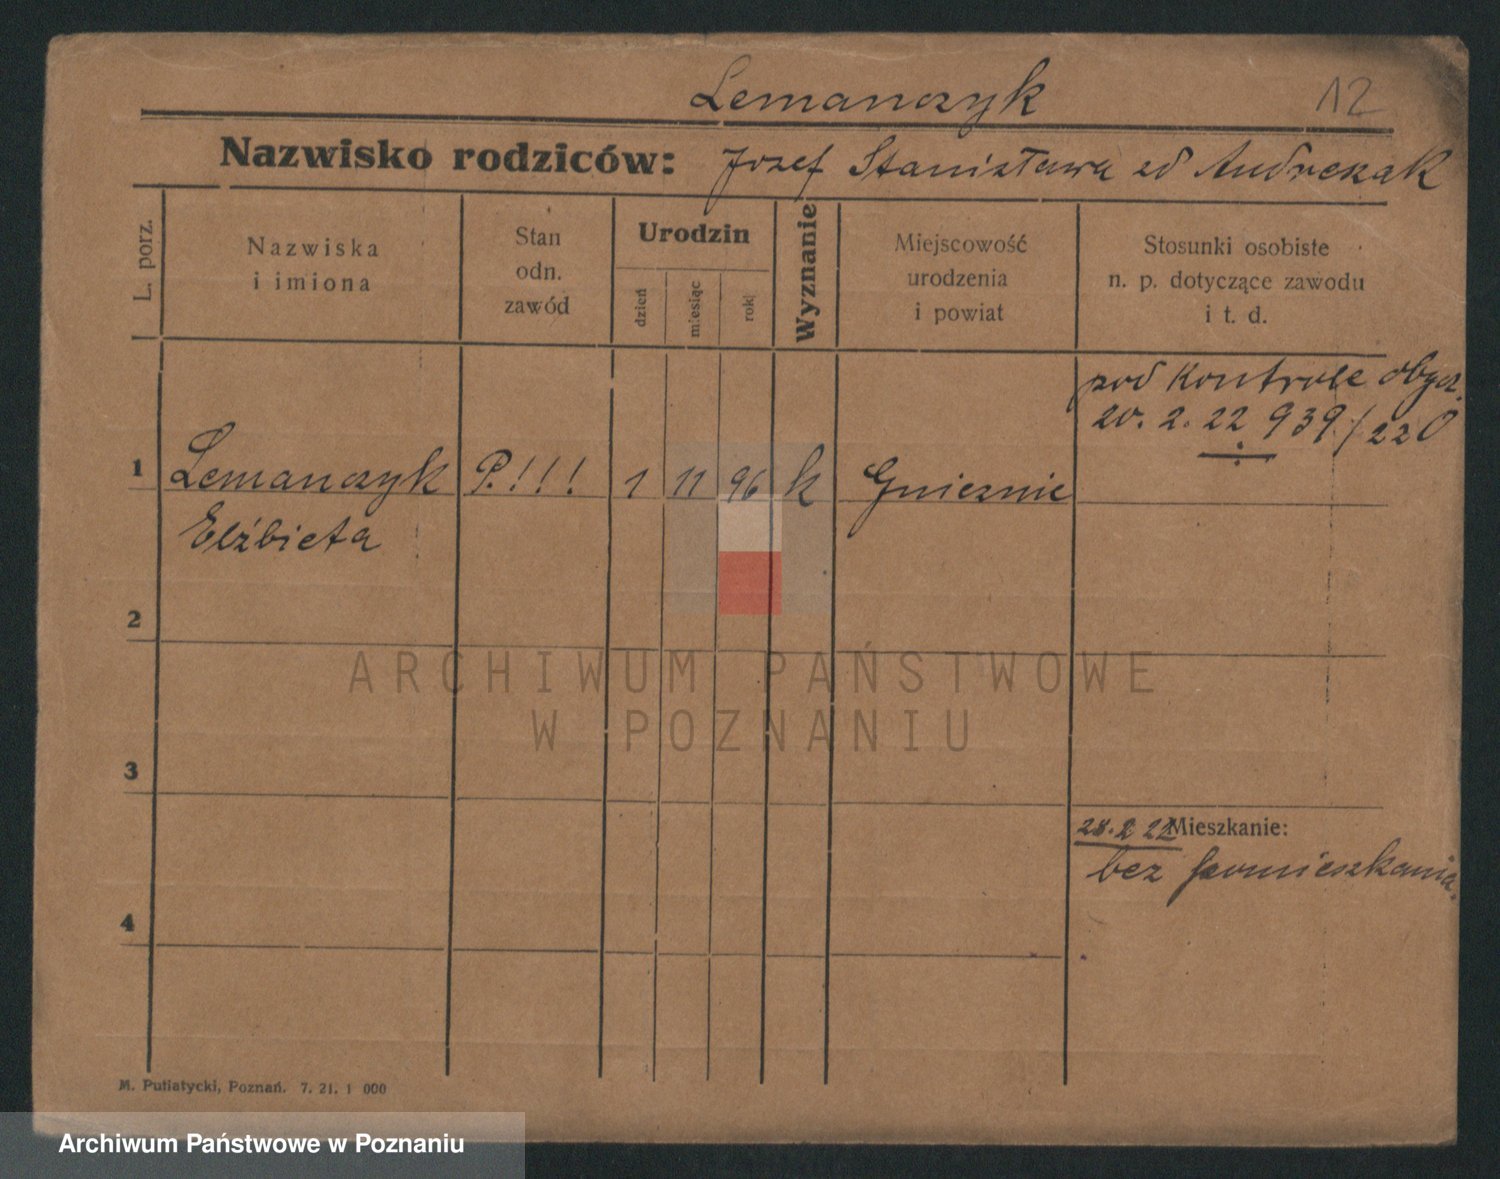 Lemanczyk
12
Nazwisko rodziców: Jozef Stanisława zd Andrezak
L. porz.
Nazwiska
i imiona
Stan
odn.
zawód
Urodzin
dzień
miesiąc
rok
Wyznanie
Miejscowość
urodzenia
i powiat
Stosunki osobiste
n. p. dotyczące zawodu
i t. d.
pod Kontrole obycz.
20. 2. 22 939/22
1 Lemanczyk P.!!! 1 11 96 k Gnieznie
Elżbieta
2
3
4
Mieszkanie:
bez pomieszkania.
ARCHIWUM PAŃSTWOWE
W POZNANIU
M. Putiatycki, Poznań. 7. 21. 1 000
Archiwum Państwowe w Poznaniu